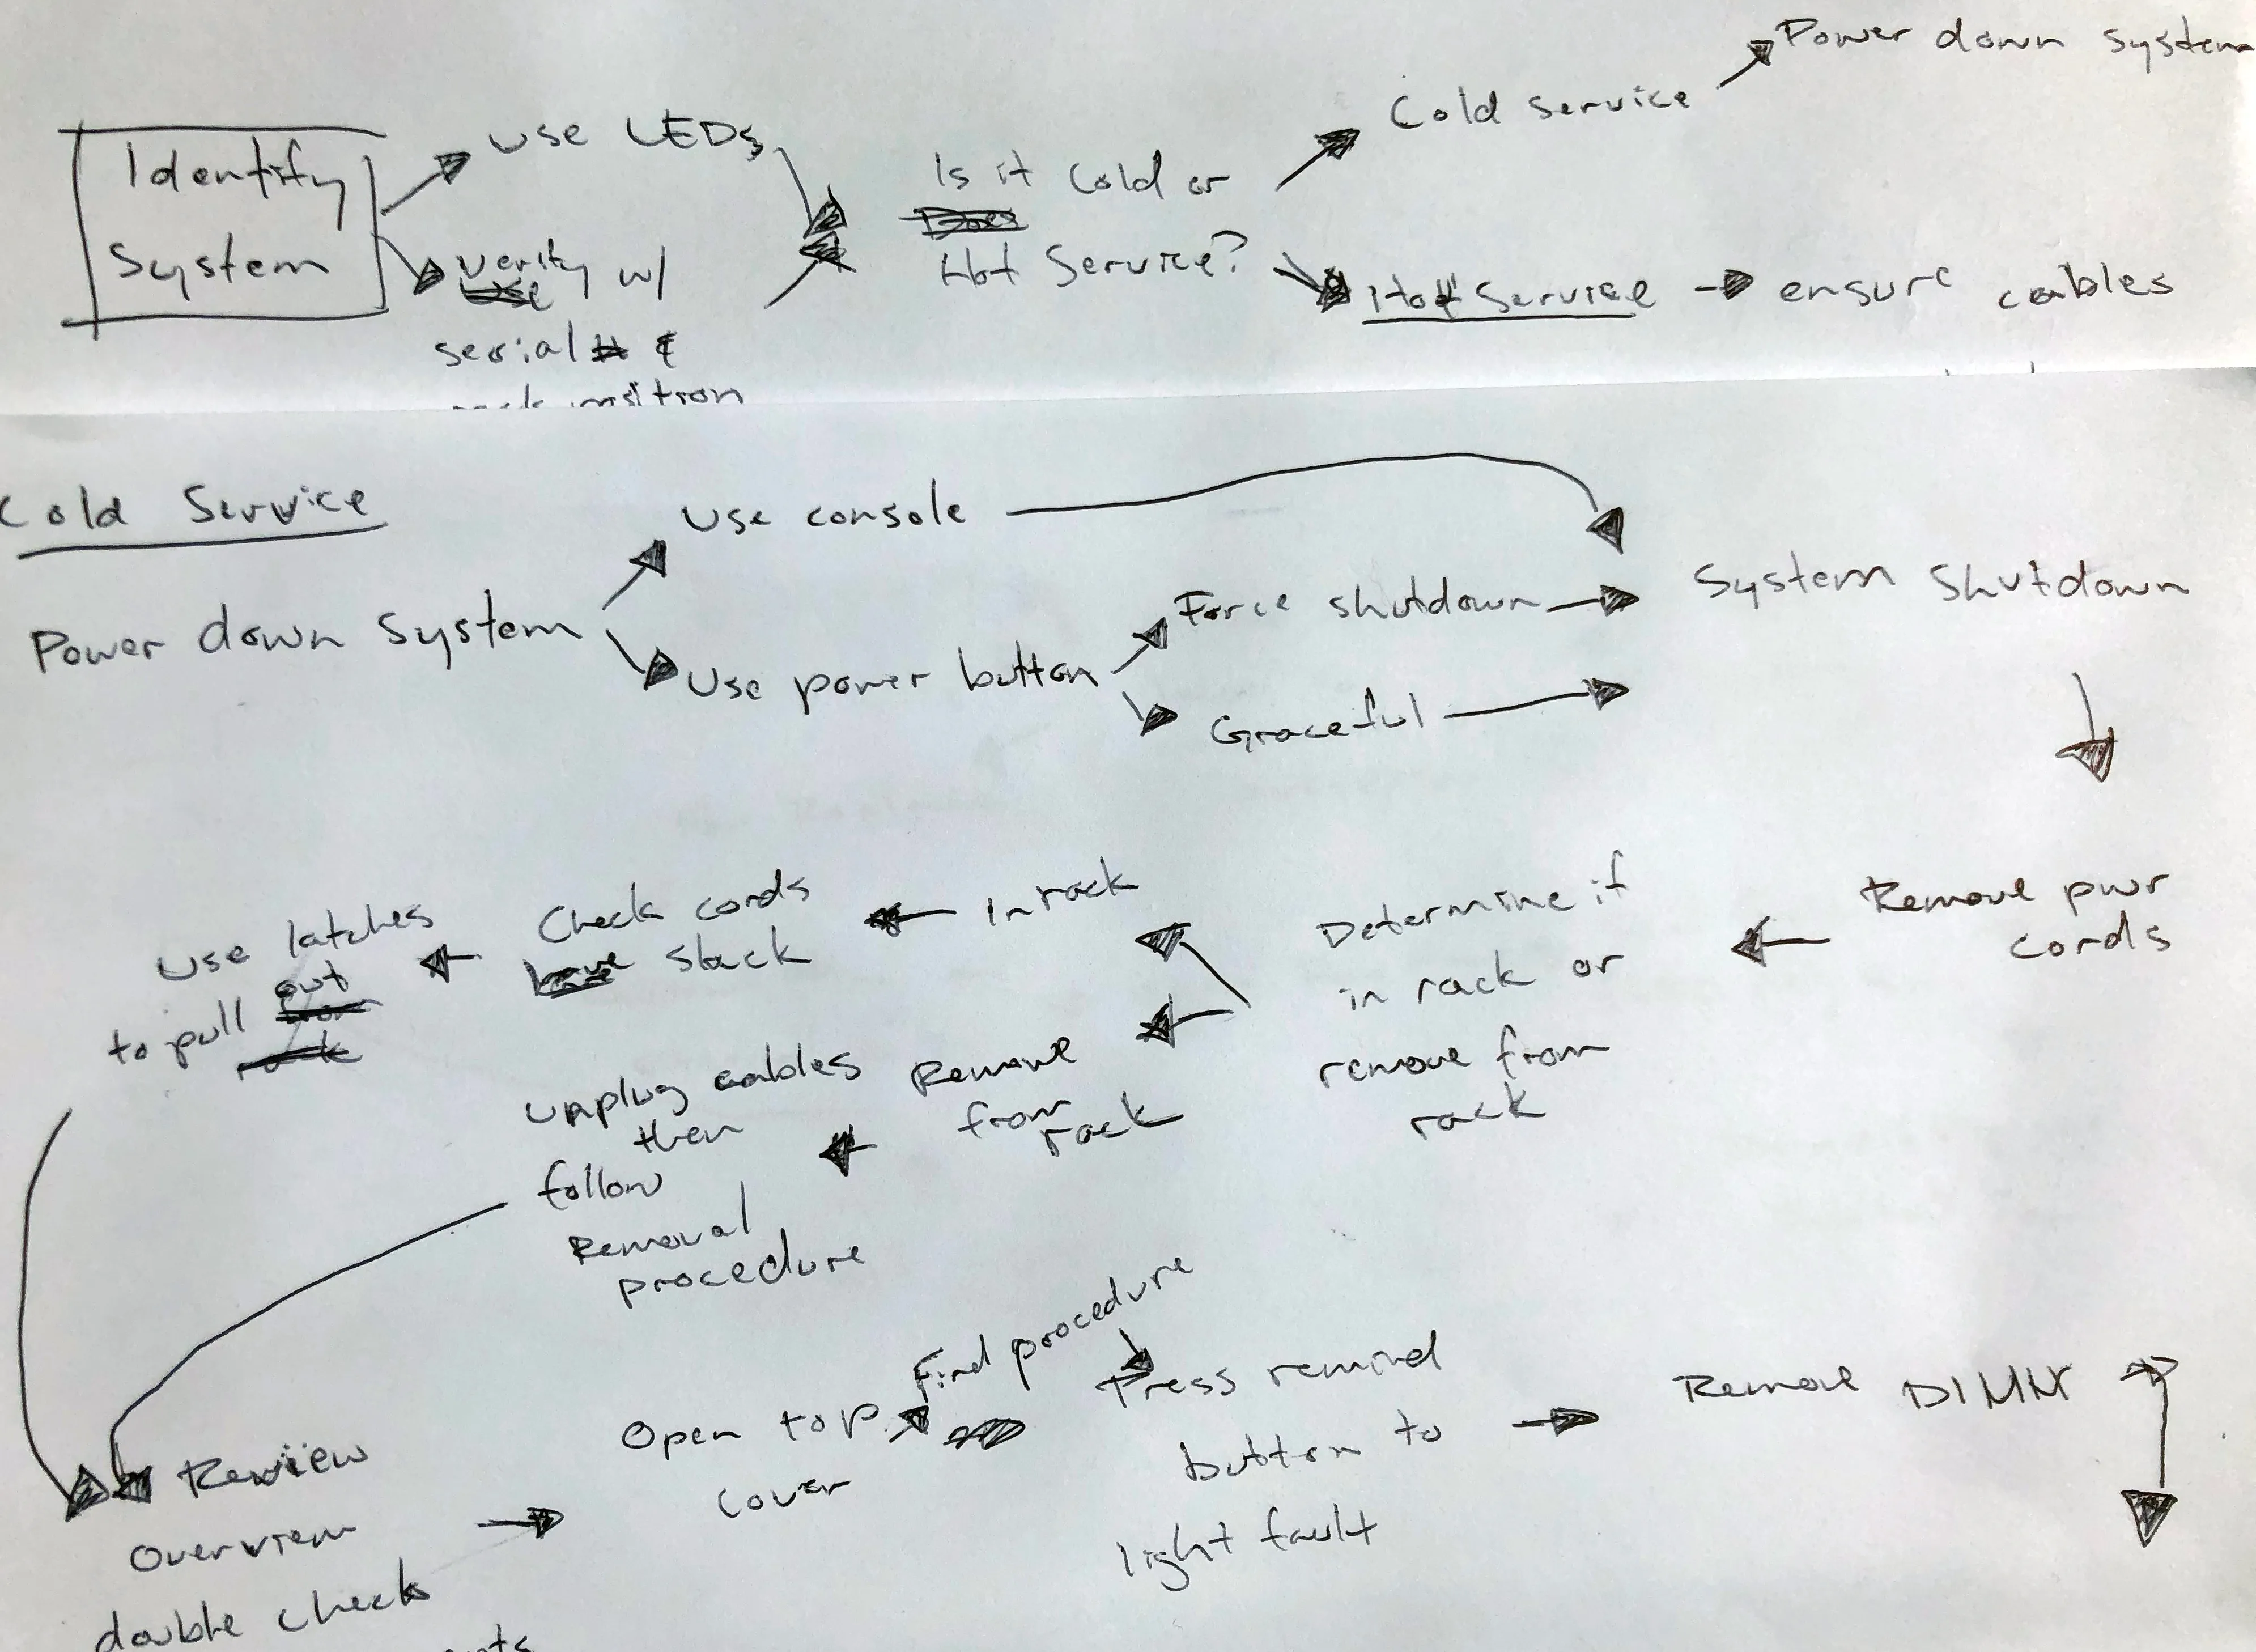 Power down system
Cold service
Use LEDs
Identify
System
Is it Cold or
Hot Service?
verify w/
serial # &
position
Hot Service
ensure cables
Cold Service
Use console
System Shutdown
Force shutdown
Power down System
Use power button
Graceful
Remove pwr
cords
Determine if
in rack or
remove from
rack
In rack
Check cords
have slack
Use latches
to pull out
Remove
from
rack
unplug cables
then
follow
Removal
procedure
Find procedure
Review
Overview
double check
Open top
cover
Press remind
button to
light fault
Remove DIMM